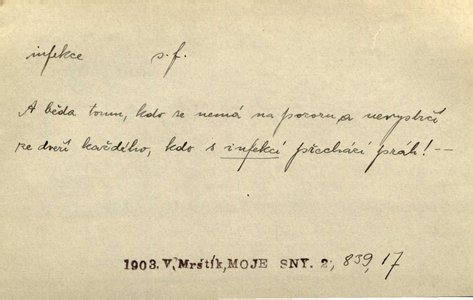 infekce s.f.
A běda tomu, kdo se nemá na pozoru a nevystrčí
ze dveří každého, kdo s infekcí přechází práh! —
1903. V. Mrštík, MOJE SNY. 2, 839, 17